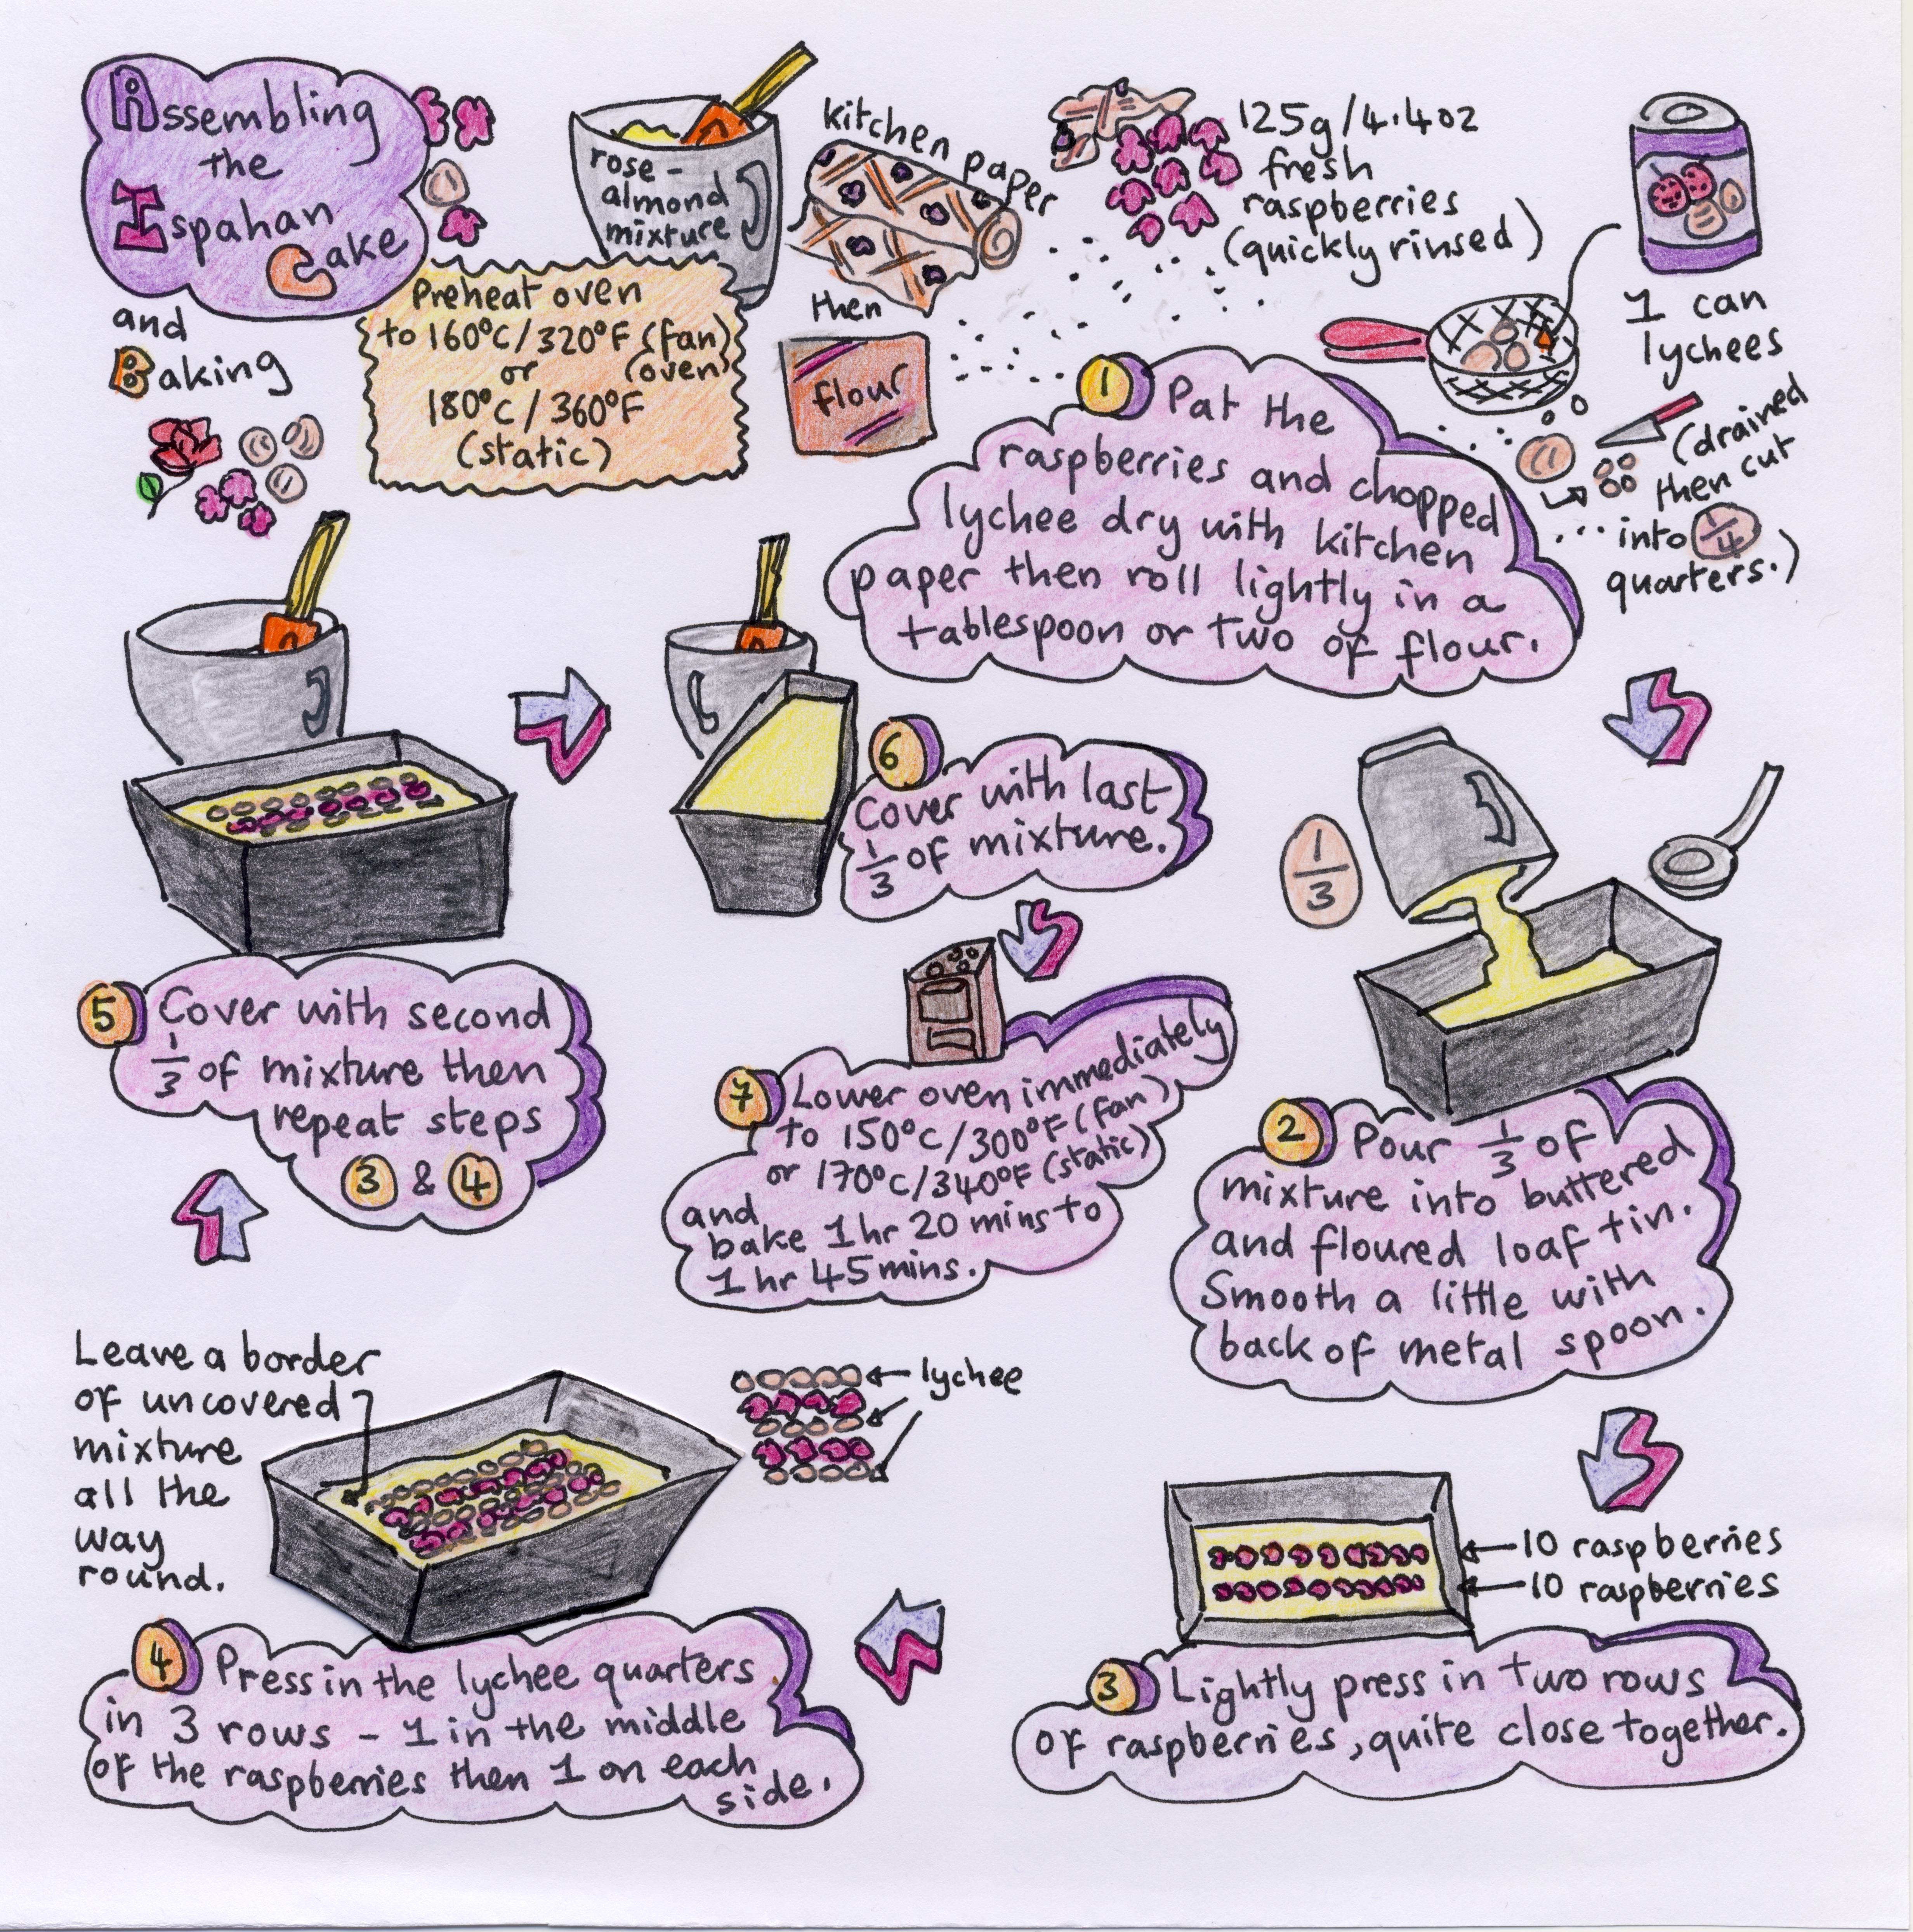 Assembling
the
Ispahan
Cake
and
Baking
rose-
almond
mixture
Preheat oven
to 160°C/320°F (fan)
or (oven)
180°C/360°F
(static)
kitchen paper
then
flour
125g/4.4oz
fresh
raspberries
(quickly rinsed)
1 can
lychees
(drained
then cut
into 1/4
quarters.)
1 Pat the
raspberries and chopped
lychee dry with kitchen
paper then roll lightly in a
tablespoon or two of flour.
1/3
2 Pour 1/3 of
mixture into buttered
and floured loaf tin.
Smooth a little with
back of metal spoon.
10 raspberries
10 raspberries
3 Lightly press in two rows
of raspberries, quite close together.
Leave a border
of uncovered
mixture
all the
way
round.
lychee
4 Press in the lychee quarters
in 3 rows - 1 in the middle
of the raspberries then 1 on each
side.
5 Cover with second
1/3 of mixture then
repeat steps
3 & 4
6 Cover with last
1/3 of mixture.
7 Lower oven immediately
to 150°C/300°F (fan)
or 170°C/340°F (static)
and
bake 1 hr 20 mins to
1 hr 45 mins.